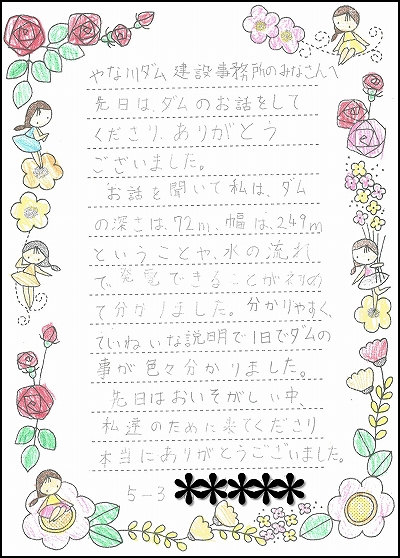 やな川ダム建設事務所のみなさんへ
先日は、ダムのお話をして
くださり、ありがとう
ございました。
お話を聞いて私は、ダム
の深さは、72m、幅は、249m
ということや、水の流れ
で、発電できることが初め
て分かりました。分かりやすく、
ていねいな説明で1日でダムの
事が色々分かりました。
先日はおいそがしい中、
私達のために来てくださり
本当にありがとうございました。
5-3